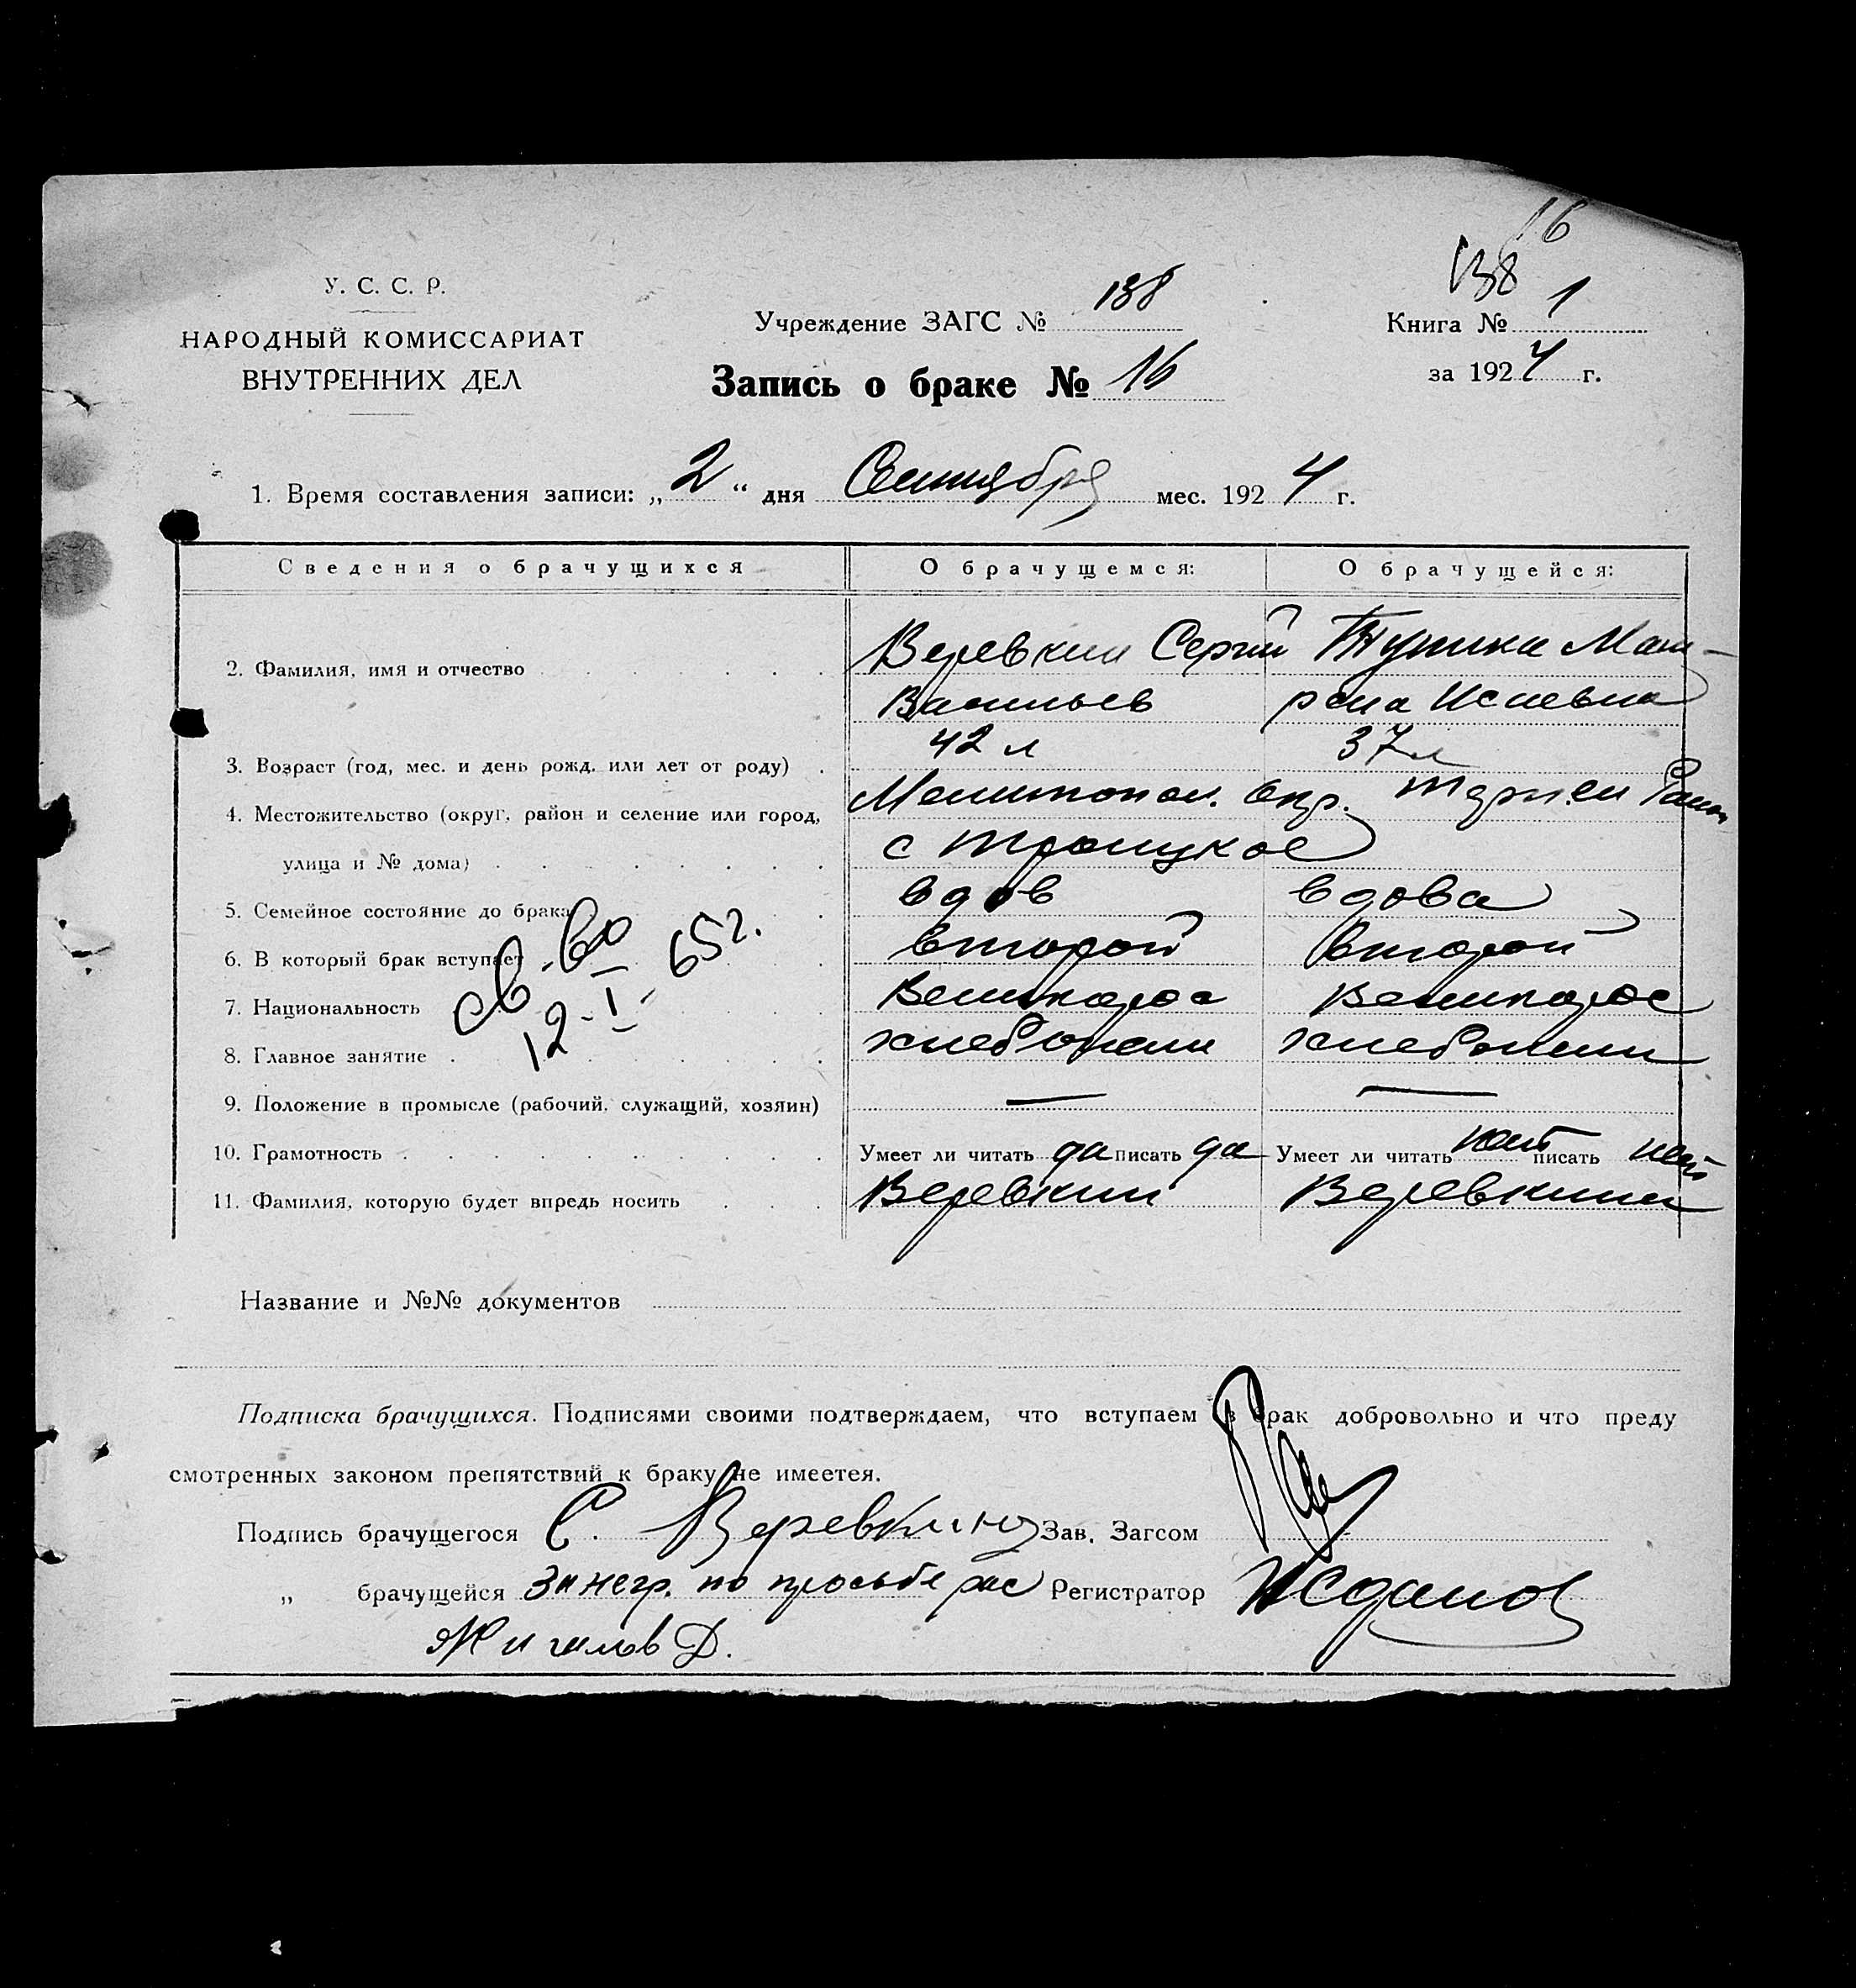 16
138
У. С. С. Р.
НАРОДНЫЙ КОМИССАРИАТ
ВНУТРЕННИХ ДЕЛ
Учреждение ЗАГС № 138
Книга № 1
за 1924 г.
Запись о браке № 16
1. Время составления записи: „2“ дня Сентября мес. 1924 г.
Сведения о брачущихся О брачущемся: О брачущейся:
2. Фамилия, имя и отчество Веревкин Сергий
Васильев
3. Возраст (год, мес. и день рожд. или лет от роду) 42 л 37 л
4. Местожительство (округ, район и селение или город, Мелитопол. Окр.
улица и № дома) с Троицкое
5. Семейное состояние до брака вдов вдова
6. В который брак вступает второй второй
7. Национальность Великорос Великорос
8. Главное занятие хлебопаш хлебопаш
9. Положение в промысле (рабочий, служащий, хозяин) — —
10. Грамотность Умеет ли читать да писать да Умеет ли читать нет писать нет
11. Фамилия, которую будет впредь носить Веревкин Веревкина
св-во
12-I-65г.
Название и №№ документов
Подписка брачущихся. Подписями своими подтверждаем, что вступаем в брак добровольно и что преду
смотренных законом препятствий к браку не имеетея.
Подпись брачущегося С. Веревкин Зав. Загсом
„ брачущейся За негр. по просьбе рас Регистратор Жданов
Жигалов Д.